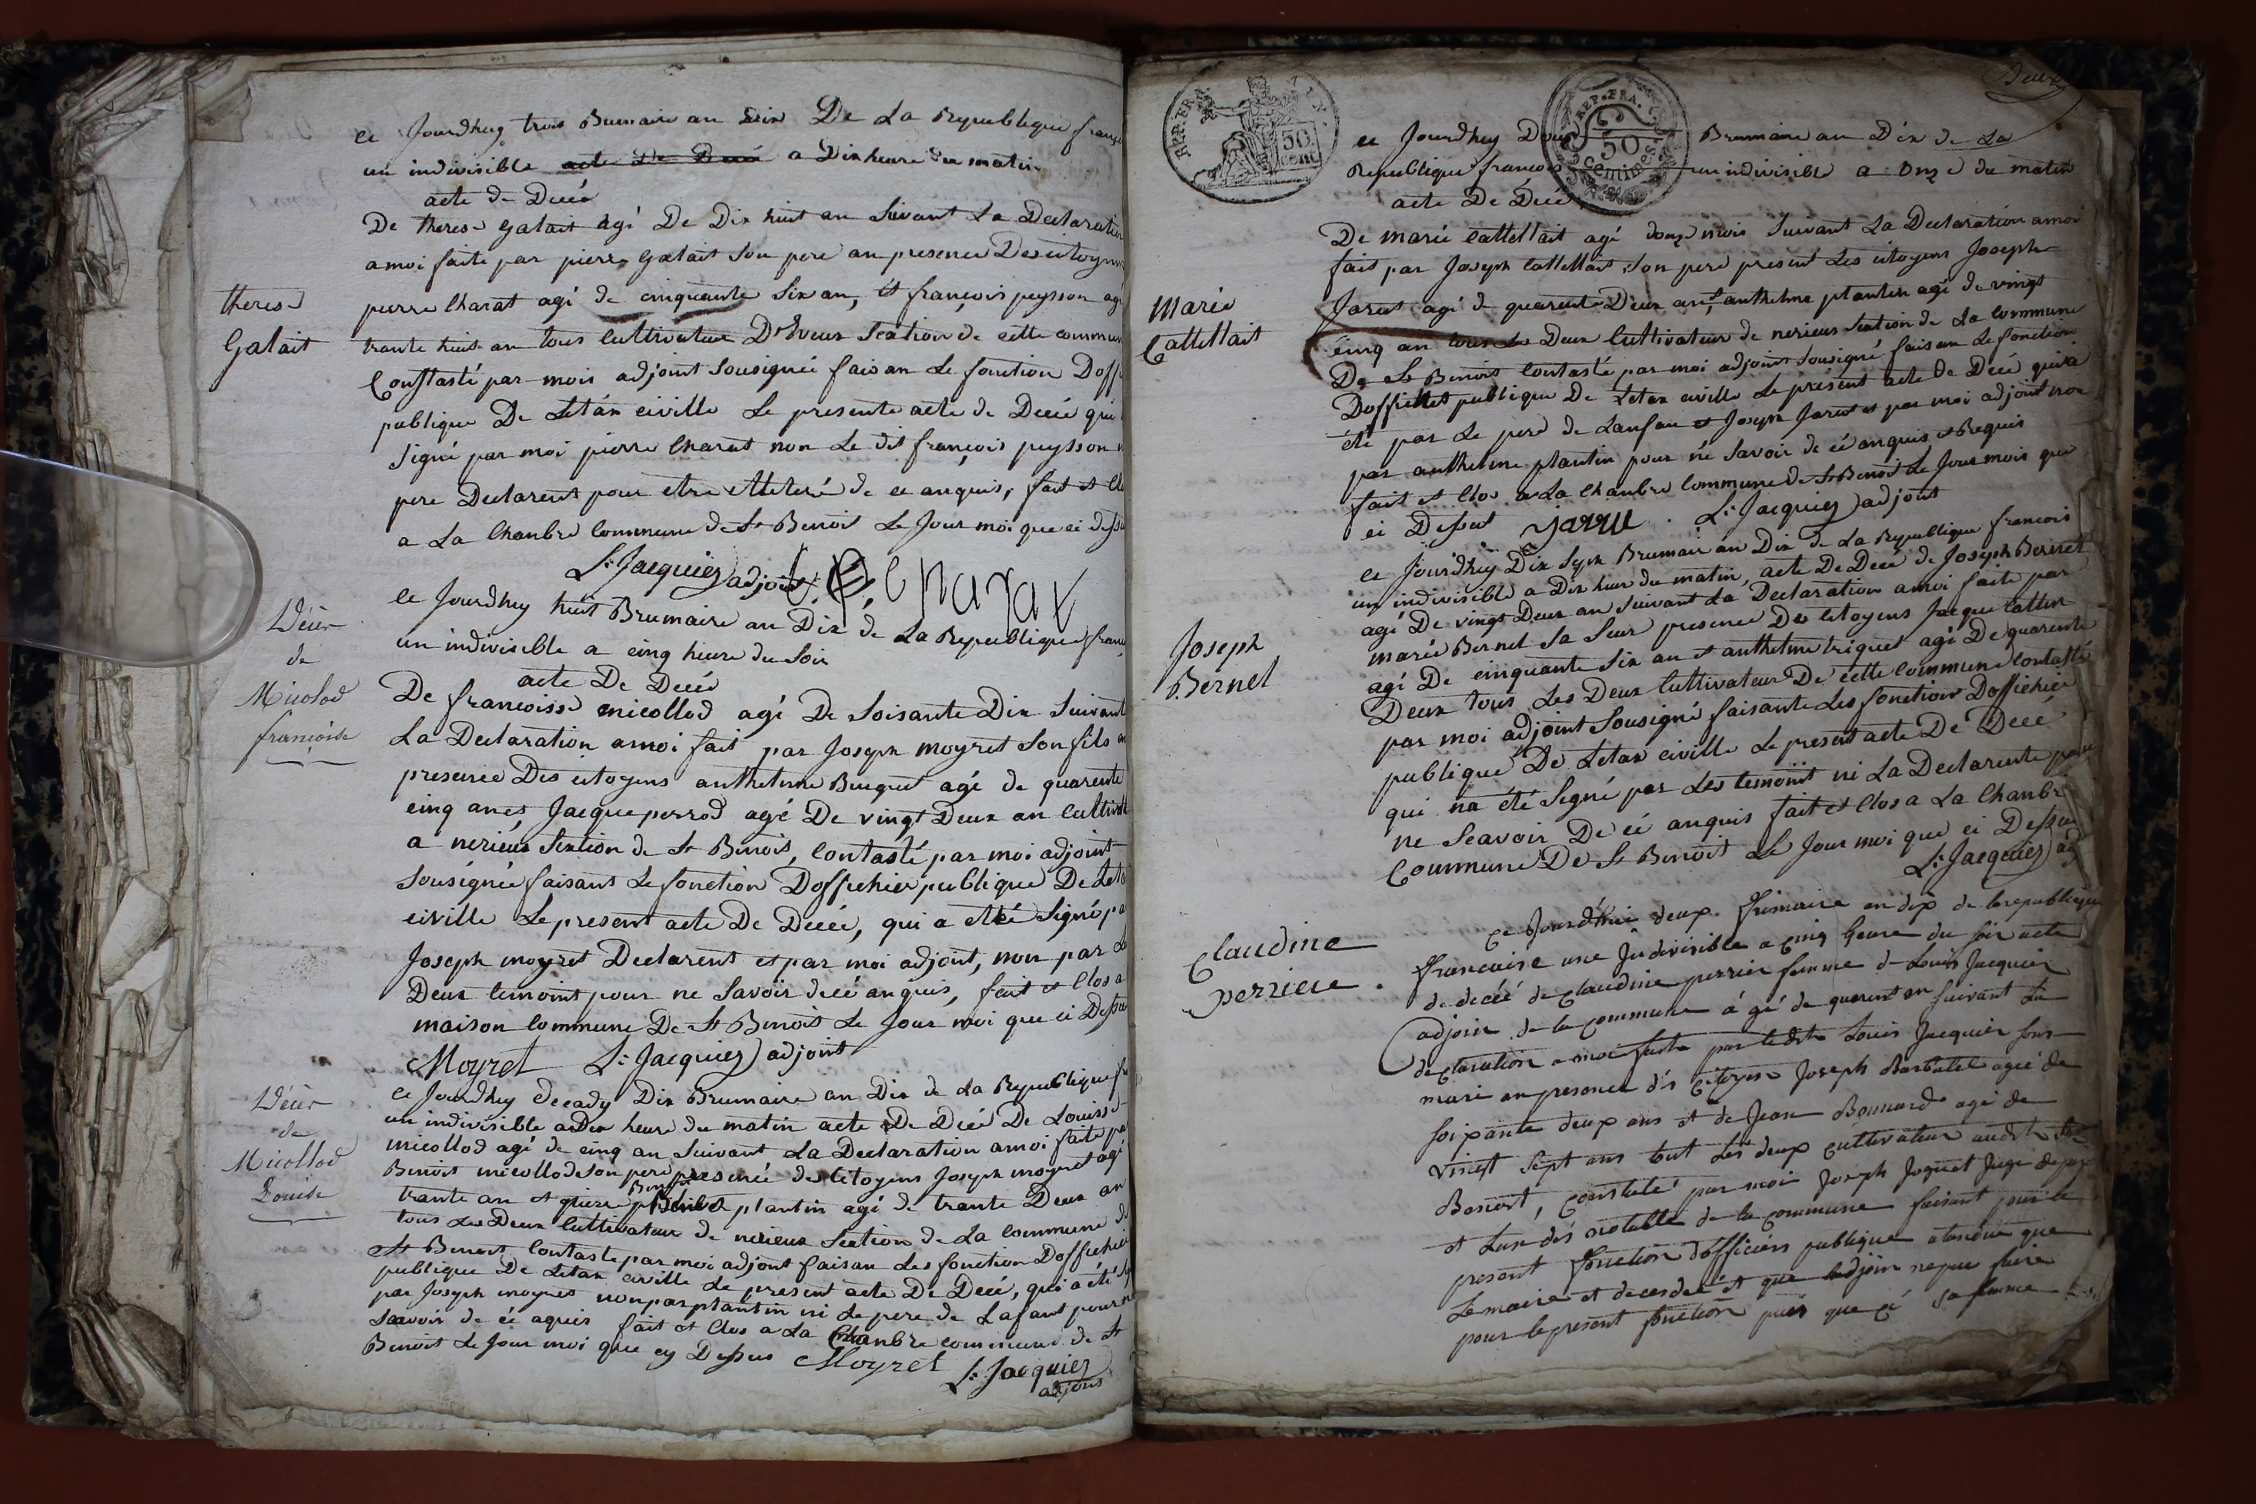 ce Jourdhuy trois Brumaire an Dix De La Republique franç
un indivisible acte De Decé a Dix heure du matin
acte de Decé
De therese galait agé De Dix huit an Suivant La Declaration
amoi faite par pierre galait Son pere an presence Des citoyens
therese
Galait
pierre Charat agé de cinquante Six an, et françois peysson agé
trante huit an tous Cultivateur Section de cette commune
Constasté par mois adjoint Sousigneé faisan Le fonction Doff
publique De Letax civille Le presente acte de Deceé qui
Signé par moi pierre Charat non Le dit françois peysson n
pere Declarent pour etre de ce anquis, fait et Clo
a La Chanbre Commune de St Benoit Le Jour moi que ci dessu
Ls Jacquier adjoint P, Charax
Décès
de
Micolod
françoise
Ce Jourdhuy huit Brumaire an Dix de La Republique franç
un indivisible a cinq heure du Soir
acte De Decé
De françoisse micollod agé De Soisante Dix Suivant
La Declaration amoi fait par Joseph moyret Son fils an
presence Des citoyens anthelme Buquet agé de quarente
cinq an et Jacque perrod agé De vingt Deux an Cultivat
a nerieux Section de St Benoit, Contasté par moi adjoint
Sousignée faisant Le fonction Dofficher publique De Leta
civille Le present acte De Deceé, qui a etté Signé pa
Joseph moyret Declarent et par moi adjoint, non par Le
Deux temoint pour ne Savoir de cé anquis, fait et Clos a
maison Commune De St Benoit Le Jour moi que ci Dessu
Moyret Ls Jacquier adjoint
Décès
de
Micollod
Louise
Ce Jourdhuy Decady Dix Brumaire an Dix de La Republique fr
un indivisible a Dix heure du matin acte De Decé De Louisse
micollod agé de cinq an Suivant La Declaration amoi faite par
Benoit micollod Son pere presence des Citoyens Joseph moyret agé
trante an et piere Benoit plantin agé de trante Deux an
tous Les Deux Cultivateur de nerieux Section de La Commune de
St Benoit Contasté par moi adjoint faisan Les fonction Dofficher
publique De Letax civille Le present acte De Decé, qui a été
par Joseph moyret non par plantin ni Le pere de Lafant pour n
Savoir de cé aquis fait et Clos a La Chanbre commune de St
Benoit Le Jour moi que cy Dessus Moyret
Ls Jacquier
adjoint
REP. FRA.
50
cent
REP. FRA.
50
Centimes
ce Jourdhuy Brumaire an Dix de La
Republique françois un indivisible a onze du matin
acte De Decé
De marie Cattellait agé douze mois Suivant La Declaration amoi
fait par Joseph Cattellait Son pere present Les citoyens Joseph
Marie
Cattellait
Jarut agé de quarente Deux an et anthelme plantin agé de vingt
cinq an tous Les Deux Cultivateur de nerieux Section de La Commune
De St Benoit Contasté par moi adjoint Sousigné faisan Le fonction
publique De Letax civille Le present acte De Decé qui a
été par Le pere de Lanfan et Joseph Jarut et par moi adjoint non
par anthelme plantin pour né Savoir de cé anquis et Requis
fait et Clos a La Chanbre Commune de St Benoit Le Jour mois que
ci Dessut Jarru. Ls Jacquier adjoint
ce Jourdhuy Dix Sept Brumaire an Dix de La Republique francois
un indivisible a Dix heur du matin, acte De Decé de Joseph Bernet
agé De vingt Deux an Suivant La Declaration amoi faite par
Joseph
Bernet
marie Bernet Sa Seur presence De Citoyens Jacque Cattin
agé De cinquante Six an et anthelme triquet agé De quarente
Deux tous Les Deux Cultivateur De cette Commune Contasté
par moi adjoint Sousigné faisante Les fonction Dofficher
publique De Letax civille Le present acte De Deceé
qui na été Signé par Les temoint ni La Declarente pour
ne Scavoir De cé anquis fait et Clos a La Chanbre
Commune De St Benoit Le Jour moi que ci Dessu
Ls Jacquier adj
Claudine
perriere
Ce Jourd'hui deux frimaire an dix de la republique
francaise une Indivisible a cinq heure du soir acte
de decéé de Claudine perrier femme de Louis Jacquier
adjoin de la commune agé de quarent an suivant La
declaration a moi faite par ledit Louis Jacquier son
mari an presence dés Citoyen Joseph Barbatel ageé de
soixante deux ans et de Jean Bonnard agé de
vinct sept ans tout Les deux cultivateur audit St
Benoit, Constaté par moi Joseph Joguet Juge de paix
et Lun dés notable de la commune faisant pour le
present fonction d'officiers publique atendue que
Le maire et decédeé et que Ladjoin ne peu faire
pour le present fonction puis que cé sa femme